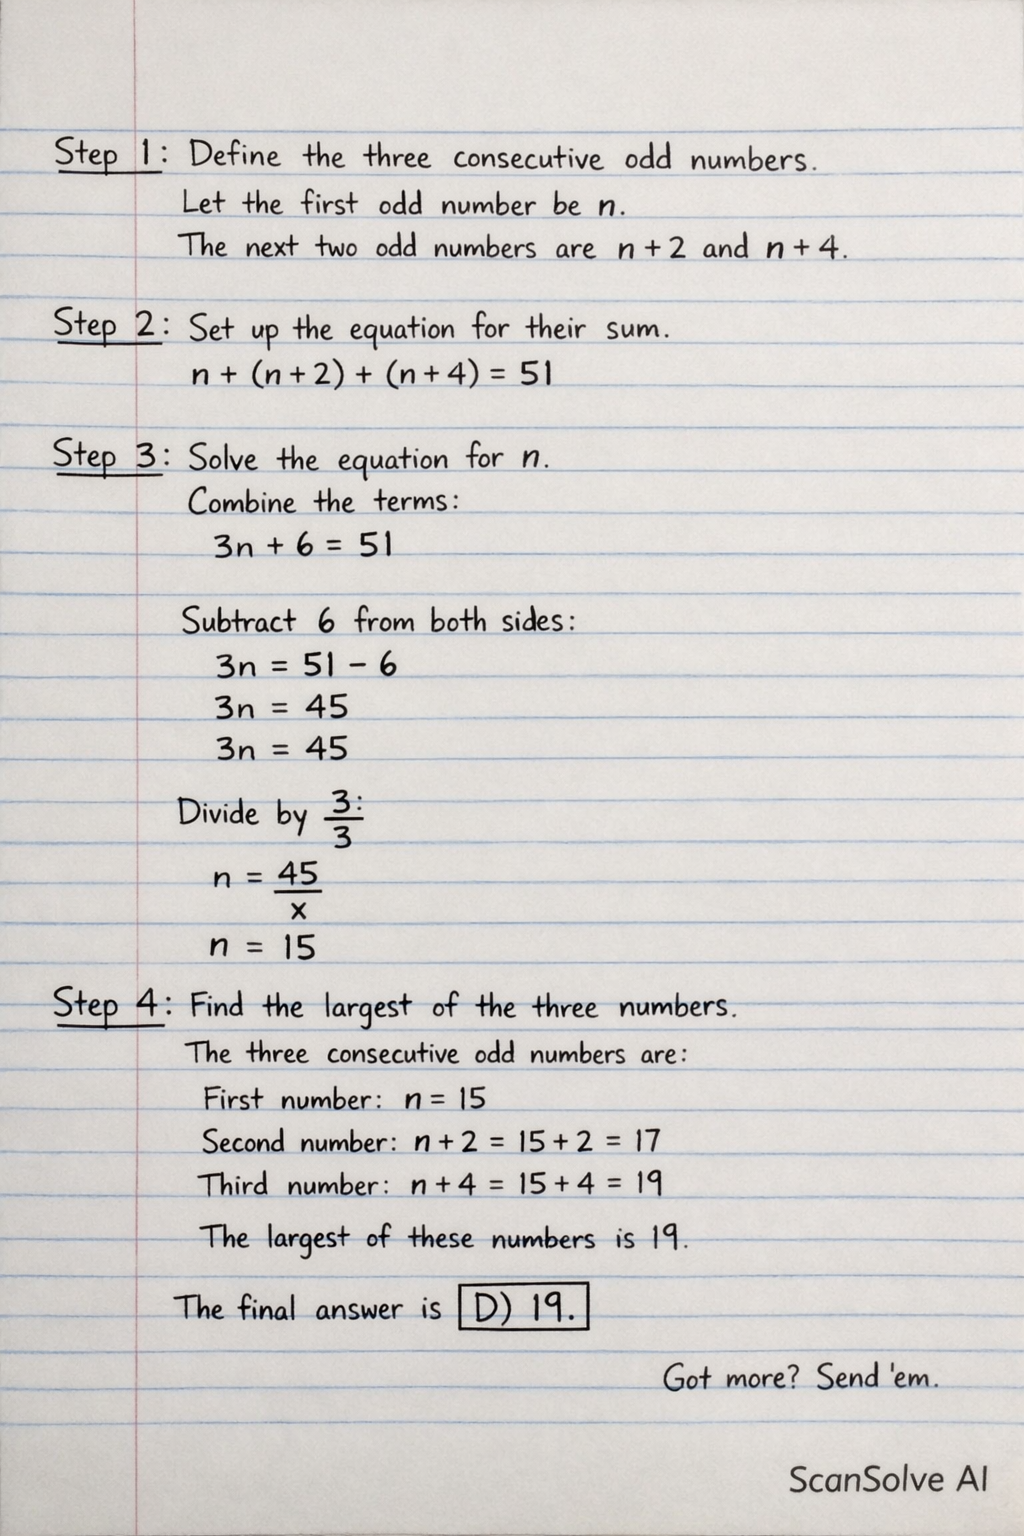 Step 1: Define the three consecutive odd numbers.
Let the first odd number be n.
The next two odd numbers are n + 2 and n + 4.
Step 2: Set up the equation for their sum.
n + (n + 2) + (n + 4) = 51
Step 3: Solve the equation for n.
Combine the terms:
3n + 6 = 51
Subtract 6 from both sides:
3n = 51 - 6
3n = 45
3n = 45
Divide by 3:/3
n = 45/x
n = 15
Step 4: Find the largest of the three numbers.
The three consecutive odd numbers are:
First number: n = 15
Second number: n + 2 = 15 + 2 = 17
Third number: n + 4 = 15 + 4 = 19
The largest of these numbers is 19.
The final answer is D) 19.
Got more? Send 'em.
ScanSolve AI